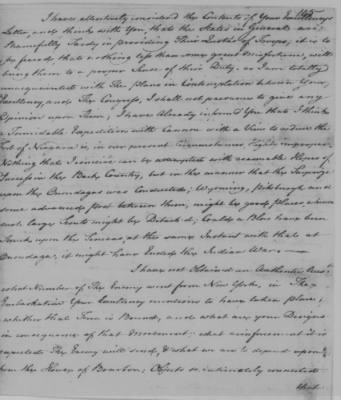 I have attentively considered the Contents of Your Excellencys
Letter, and think with You, that the States in General are
Shamefully Tardy in providing Their Quotas of Troops; it is to
be feared, that nothing less than some great misfortune, will
bring them to a proper Sense of their Duty. as I am totally
unacquainted with The plans in Contemplation between Your
Excellency and The Congress, I shall not presume to give any
Opinion upon Them; I have already informed You that I think
a Formidable Expedition with Cannon with a View to reduce the
Fort of Niagara is, in our present Circumstances, highly improper.
Nothing that I conceive can be attempted with reasonable Hopes of
Success in the Back Country, but in the manner that the Surprize
upon the Onondagas was Conducted; Wyoming, Pittsburgh and
some advanced post between them, might be good places, whence
such large Scouts might be Detach'd; Could a Blow have been
Struck upon the Senecas, at the same Instant with that at
Onondaga, it might have Ended the Indian War.
I have not Obtained an Authentic
Number of The Enemy went from New York, in The
Embarkation Your Excellency mentions to have taken place;
whether that Fleet is Bound, and what are your Designs
in consequence of that movement; what reinforcement it is
expected The Enemy will send, & what we are to depend upon
from the House of Bourbon; Objects so intimately connected
that